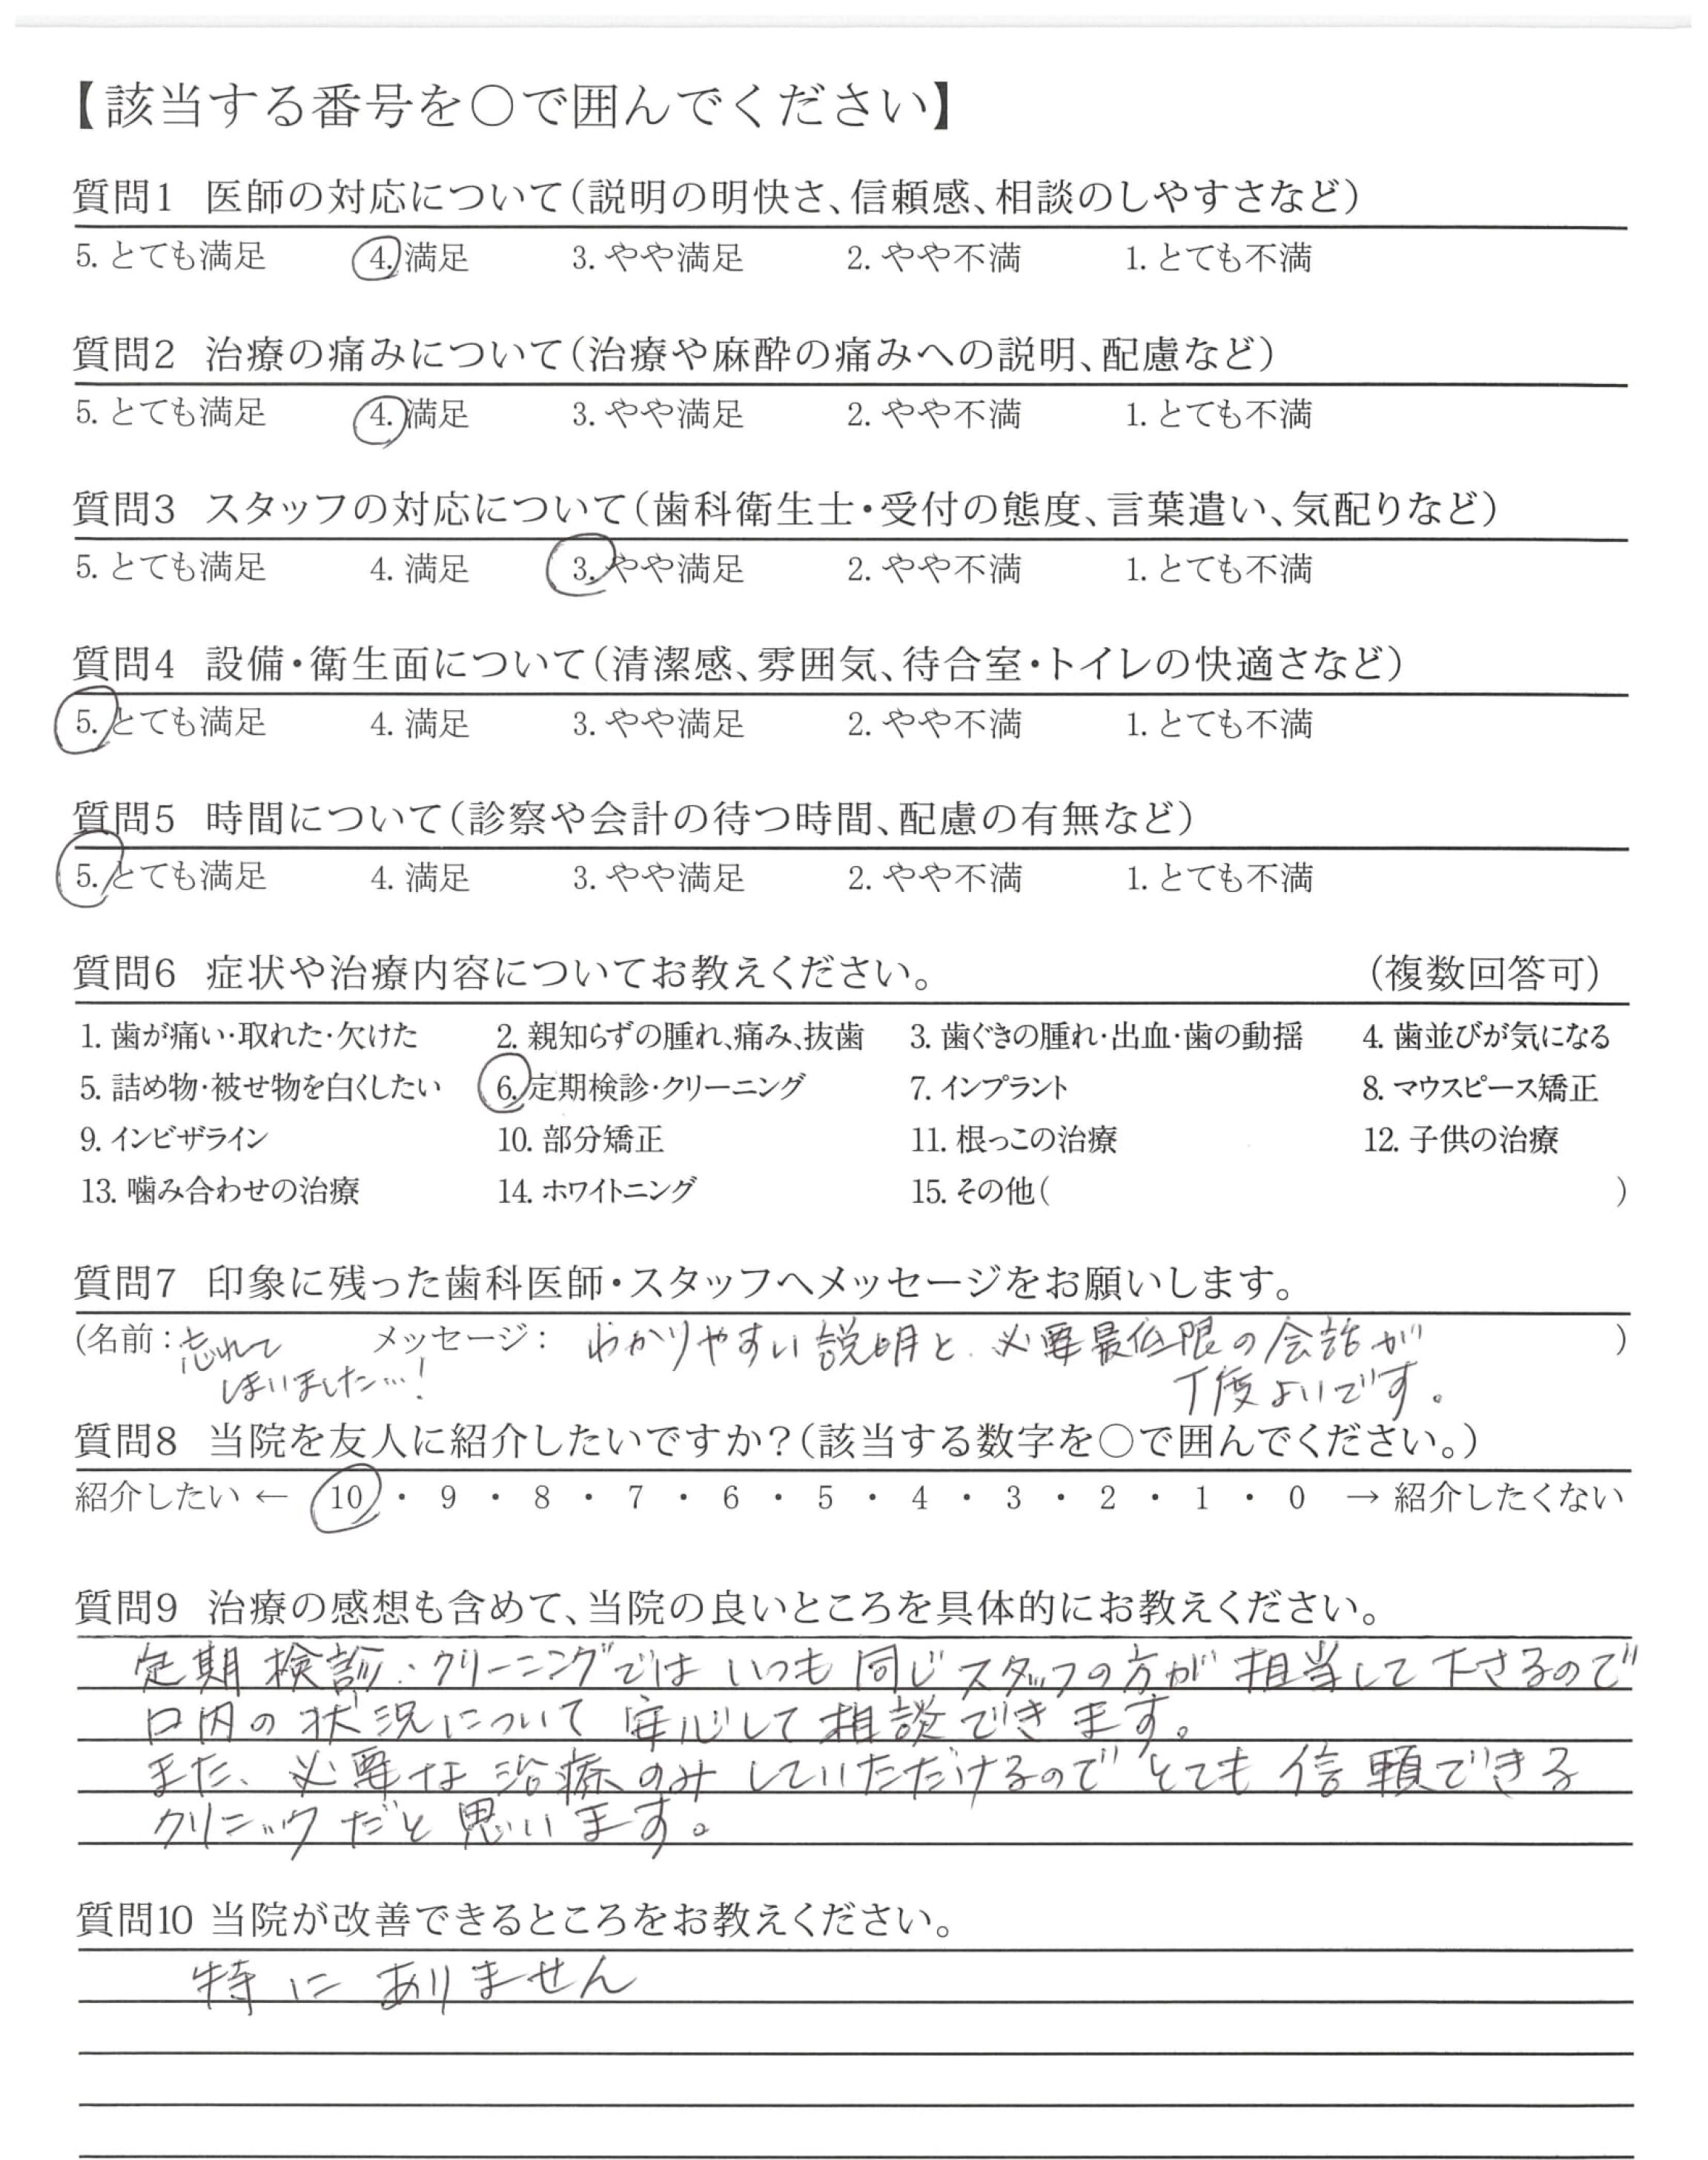 【該当する番号を〇で囲んでください】
質問1 医師の対応について(説明の明快さ、信頼感、相談のしやすさなど)
5. とても満足 4. 満足 3. やや満足 2. やや不満 1. とても不満
質問2 治療の痛みについて(治療や麻酔の痛みへの説明、配慮など)
5. とても満足 4. 満足 3. やや満足 2. やや不満 1. とても不満
質問3 スタッフの対応について(歯科衛生士・受付の態度、言葉遣い、気配りなど)
5. とても満足 4. 満足 3. やや満足 2. やや不満 1. とても不満
質問4 設備・衛生面について(清潔感、雰囲気、待合室・トイレの快適さなど)
5. とても満足 4. 満足 3. やや満足 2. やや不満 1. とても不満
質問5 時間について(診察や会計の待つ時間、配慮の有無など)
5. とても満足 4. 満足 3. やや満足 2. やや不満 1. とても不満
質問6 症状や治療内容についてお教えください。 (複数回答可)
1. 歯が痛い・取れた・欠けた 2. 親知らずの腫れ、痛み、抜歯 3. 歯ぐきの腫れ・出血・歯の動揺 4. 歯並びが気になる
5. 詰め物・被せ物を白くしたい 6. 定期検診・クリーニング 7. インプラント 8. マウスピース矯正
9. インビザライン 10. 部分矯正 11. 根っこの治療 12. 子供の治療
13. 噛み合わせの治療 14. ホワイトニング 15. その他( )
質問7 印象に残った歯科医師・スタッフへメッセージをお願いします。
(名前:忘れて メッセージ: わかりやすい説明と、必要最低限の会話が )
しまいました…! 丁度よいです。
質問8 当院を友人に紹介したいですか?(該当する数字を〇で囲んでください。)
紹介したい ← 10 ・ 9 ・ 8 ・ 7 ・ 6 ・ 5 ・ 4 ・ 3 ・ 2 ・ 1 ・ 0 → 紹介したくない
質問9 治療の感想も含めて、当院の良いところを具体的にお教えください。
定期検診・クリーニングではいつも同じスタッフの方が担当して下さるので
口内の状況について安心して相談できます。
また、必要な治療のみしていただけるのでとても信頼できる
クリニックだと思います。
質問10 当院が改善できるところをお教えください。
特にありません